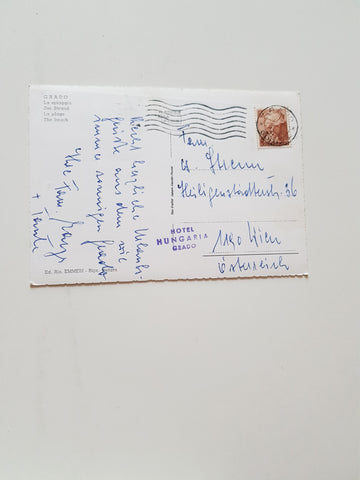 GRADO
La spiaggia
Der Strand
La plage
The beach
Recht herzliche Urlaubs-
grüße aus dem wie
immer sonnigen Grado
Ihre Fam.
+ Tante
Ed. Ris. EMMETI
HOTEL
HUNGARIA
GRADO
Fam.
Heiligenstädterstr. 36
1190 Wien
Österreich